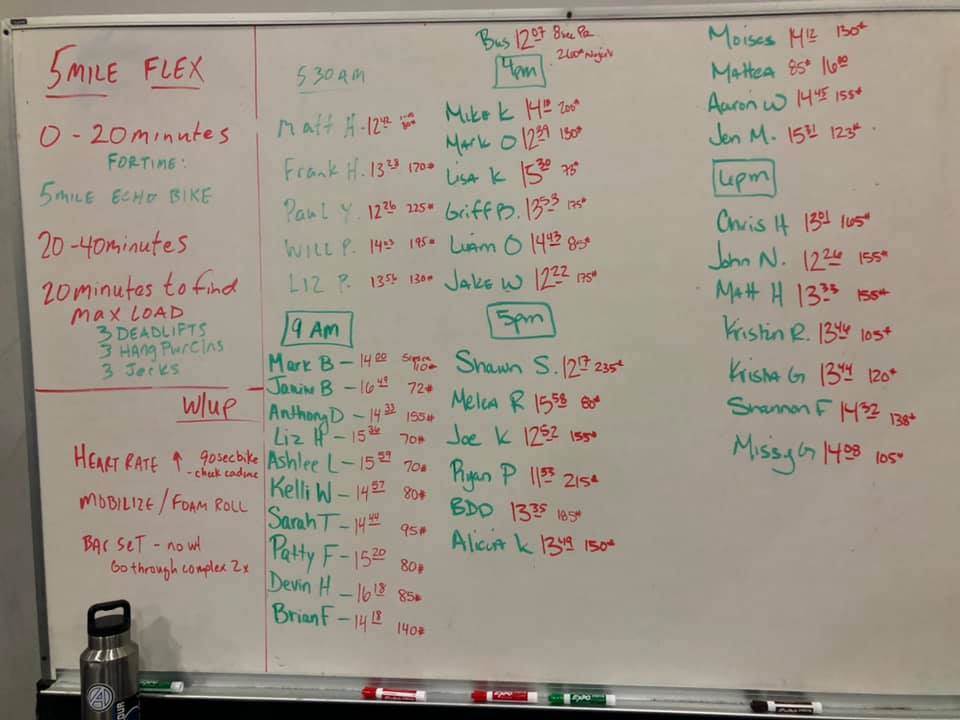 5 MILE FLEX
0 - 20 minutes
FOR TIME:
5 MILE ECHO BIKE
20-40 minutes
20 minutes to find
max LOAD
3 DEADLIFTS
3 Hang Pwr Clns
3 Jerks
W/UP
HEART RATE ↑ 90 sec bike
- check cadence
MOBILIZE / FOAM ROLL
BAR SET - no wt
Go through complex 2x
5 30 AM
Matt H - 12 42 80#
Frank H. 13 23 170#
Paul Y. 12 26 225#
WILL P. 14 03 195#
LIZ P. 13 56 130#
9 Am
Mark B - 14 20 110#
Janine B - 16 49 72#
Anthony D - 14 33 155#
Liz H - 15 36 70#
Ashlee L - 15 59 70#
Kelli W - 14 57 80#
Sarah T - 14 44 95#
Patty F - 15 20 80#
Devin H - 16 18 85#
Brian F - 14 18 140#
Bus 12 07
260#
4pm
Mike K 14 10 200#
Mark O 12 39 130#
Lisa K 15 30 75#
Griff B. 13 53 175#
Liam O 14 43 85#
Jake W 12 22 175#
5pm
Shawn S. 12 17 235#
Melea R 15 58 80#
Joe K 12 52 155#
Ryan P 11 53 215#
BDD 13 35 185#
Alicia K 13 49 150#
Moises 14 12 130#
Mattea 85# 16 00
Aaron W 14 45 155#
Jen M. 15 31 123#
6pm
Chris H 13 01 165#
John N. 12 26 155#
Matt H 13 33 155#
Kristin R. 13 46 105#
Krista G 13 44 120#
Shannon F 14 32 138#
Missy G 14 08 105#
EXPO
EXPO
EXPO